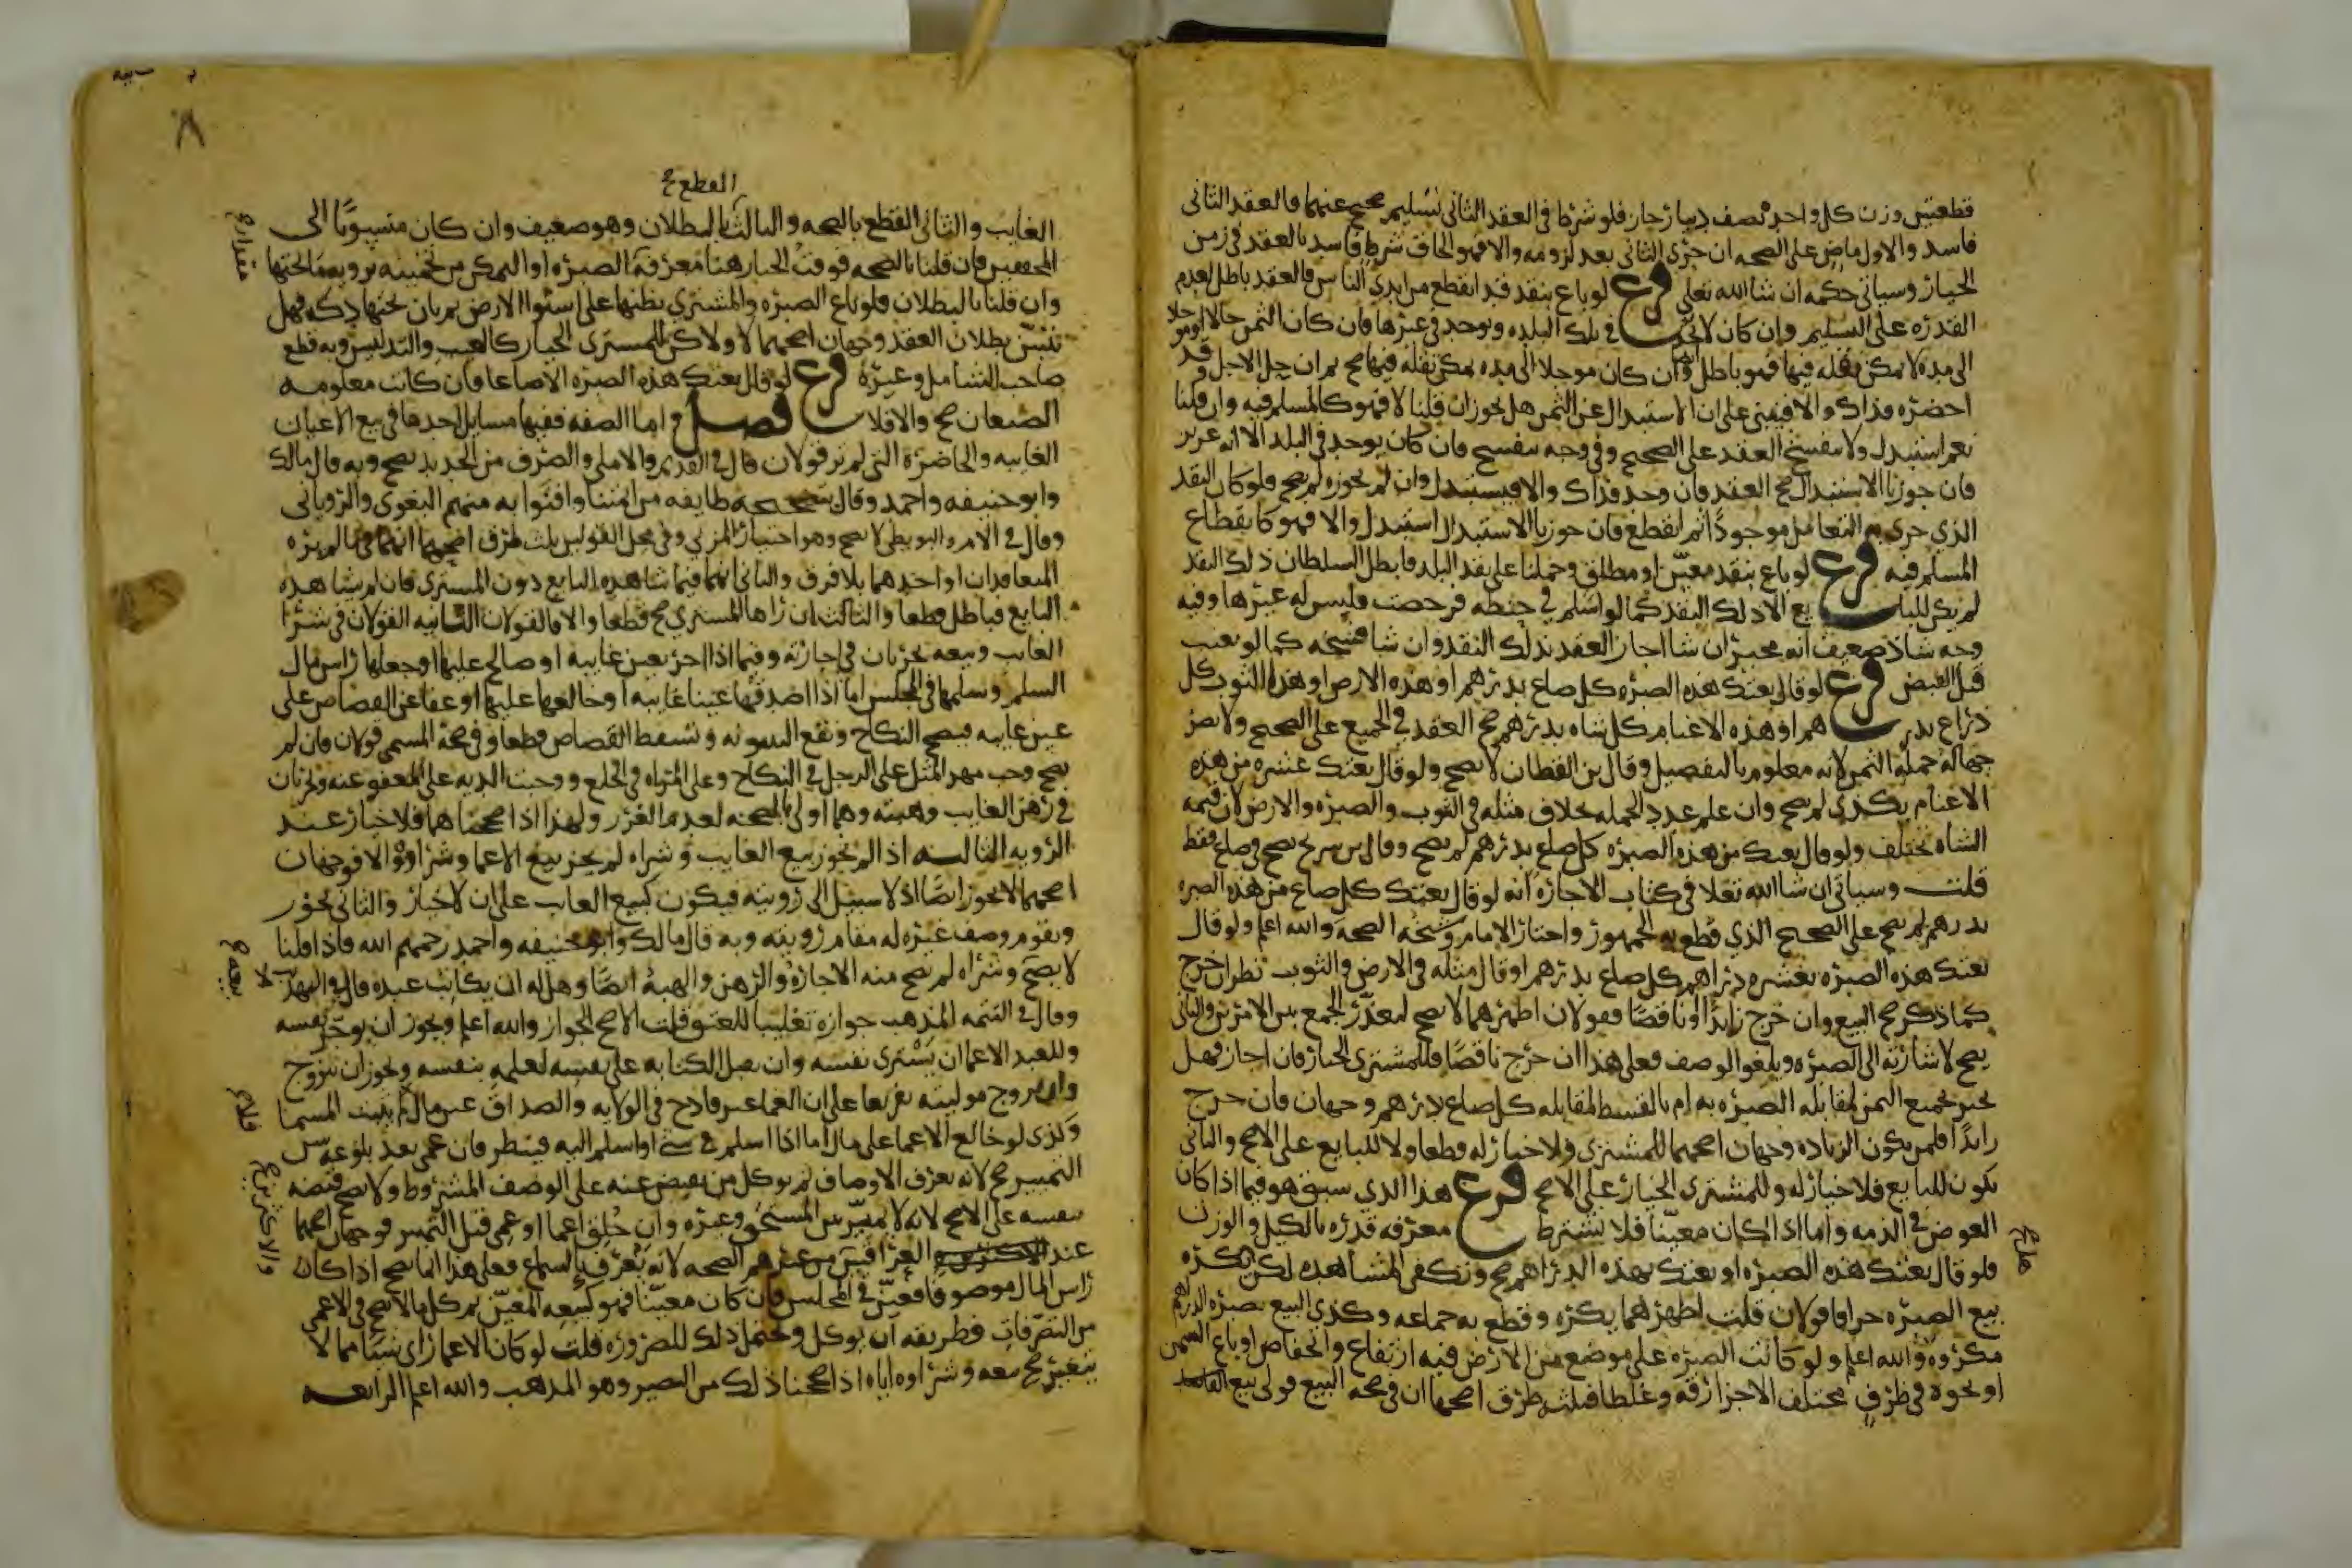 قطعتين وزن كل واحد نصف دينار جاز فلو شرط في العقد الثاني تسليم صحيح عنهما فالعقد الثاني
فاسد والاول ماض على الصحه ان جرى الثاني بعد لزومه والا فهو الحاق شرط فاسد بالعقد في زمن
الخيار وسياتي حكمه ان شا الله تعلى فرع لو باع بنقد قد انقطع من ايدي الناس فالعقد باطل لعدم
القدره على التسليم وان كان لا يوجد في تلك البلده ويوجد في غيرها فان كان الثمن حالا او موجلا
الى مده لا يمكن نقله فيها فهو باطل ايضا وان كان موجلا الى مده يمكن نقله فيها صح ثم ان حل الاجل وقد
احضره فذاك والا فيبنى على ان الاستبدال عن الثمن هل يجوز ان قلنا لا فهو كالمسلم فيه وان قلنا
نعم استبدل ولا ينفسخ العقد على الصحيح وفي وجه ينفسخ فان كان يوجد في البلد الا انه عزيز
فان جوزنا الاستبدال صح العقد فان وجد فذاك والا فيستبدل وان لم نجوزه لم يصح فلو كان النقد
الذي جرى به التعامل موجودا ثم انقطع فان جوزنا الاستبدال استبدل والا فهو كانقطاع
المسلم فيه فرع لو باع بنقد معين او مطلق وحملنا على نقد البلد فابطل السلطان ذلك النقد
لم يكن للبايع الا ذلك النقد كما لو اسلم في حنطه فرخصت فليس له غيرها وفيه
وجه شاذ ضعيف انه مخير ان شا اجاز العقد بذلك النقد وان شا فسخه كما لو تعيب
قبل القبض فرع لو قال بعتك هذه الصبره كل صاع بدرهم او هذه الارض او هذا الثوب كل
ذراع بدرهم او هذه الاغنام كل شاه بدرهم صح العقد في الجميع على الصحيح ولا يضر
جهاله جمله الثمن لانه معلوم بالتفصيل وقال بن القطان لا يصح ولو قال بعتك عشره من هذه
الاغنام بكذى لم يصح وان علم عدد الجمله بخلاف مثله في الثوب والصبره والارض لان قيمه
الشاه تختلف ولو قال بعتك من هذه الصبره كل صاع بدرهم لم يصح وقال بن سريج يصح في صاع فقط
قلت وسياتي ان شا الله تعلا في كتاب الاجاره انه لو قال بعتك كل صاع من هذه الصبره
بدرهم لم يصح على الصحيح الذي قطع به الجمهور واختار الامام وشيخه الصحه والله اعلم ولو قال
بعتك هذه الصبره بعشره دراهم كل صاع بدرهم او قال مثله في الارض والثوب نظر ان خرج
كما ذكر صح البيع وان خرج زايدا او ناقصا فقولان اظهرهما لا يصح لتعذر الجمع بين الامرين والثاني
يصح لاشارته الى الصبره ويلغو الوصف فعلى هذا ان خرج ناقصا فللمشتري الخيار فان اجاز فهل
يخير بجميع الثمن لمقابله الصبره به ام بالقسط لمقابله كل صاع بدرهم وجهان فان خرج
زايدا فلمن يكون الزياده وجهان اصحهما للمشتري ولا خيار له قطعا ولا للبايع على الاصح والثاني
يكون للبايع فلا خيار له وللمشتري الخيار على الاصح فرع هذا الذي سبق هو فيما اذا كان
العوض في الذمه واما اذا كان معينا فلا يشترط معرفه قدره بالكيل والوزن
فلو قال بعتك هذه الصبره او بعتك بهذه الدراهم صح وتكفي المشاهده لكن يكره
بيع الصبره جزافا قولان قلت اظهرهما يكره وقطع به جماعه وكذى البيع بصبره الدراهم
مكروه والله اعلم ولو كانت الصبره على موضع من الارض فيه ارتفاع وانخفاض او باع السمن
او نحوه في ظرف مختلف الاجزا رقه وغلظا فثلث طرق اصحها ان في صحه البيع قولي بيع
٨
القطع صح
الغايب والثاني القطع بالصحه والثالث بالبطلان وهو ضعيف وان كان منسوبا الى
المحققين فان قلنا بالصحه فوقت الخيار هنا معرفه مقدار الصبره او التمكن من تخمينه برويه ما تحتها
وان قلنا بالبطلان فلو باع الصبره والمشتري يظنها على استوا الارض ثم بان تحتها دكه فهل
نتبين بطلان العقد وجهان اصحهما لا ولاكن للمشتري الخيار كالعيب والتدليس وبه قطع
صاحب الشامل وغيره فرع لو قال بعتك هذه الصبره الا صاعا فان كانت معلومه
الصيعان صح والا فلا فصل اما الصفه ففيها مسايل احدها في بيع الاعيان
الغايبه والحاضره التي لم تر قولان قال في القديم والاملى والصرف من الجديد يصح وبه قال مالك
وابو حنيفه واحمد وقال بتصحيحه طايفه من ايمتنا وافتوا به منهم البغوي والروياني
وقال في الام والبويطي لا يصح وهو اختيار المزني وفي محل القولين ثلث طرق اصحها انهما فيما لم يره
المتعاقدان او احدهما بلا فرق والثاني انهما فيما شاهده البايع دون المشتري فان لم يشاهده
البايع فباطل قطعا والثالث ان راها المشتري صح قطعا والا فالقولان الثانيه القولان في شرا
الغايب وبيعه يجريان في اجارته وفيما اذا اجر بعين غايبه او صالح عليها او جعلها راس مال
السلم وسلمها في المجلس اما اذا اصدقها عينا غايبه او خالعها عليها او عفا عن القصاص على
عين غايبه فيصح النكاح وتقع البينونه ويسقط القصاص قطعا وفي صحه المسمى قولان فان لم
يصح وجب مهر المثل على الرجل في النكاح وعلى المراه في الخلع ووجبت الديه على المعفو عنه ويجريان
في رهن الغايب وهبته وهما اولى بالصحه لعدم الغرر ولهذا اذا صححناهما فلا خيار عند
الرويه الثالثه اذا لم نجوز بيع الغايب وشراه لم يجز بيع الاعما وشراوه والا فوجهان
اصحهما لا يجوز ايضا اذ لا سبيل الى رويته فيكون كبيع الغايب على ان لا خيار والثاني يجوز
ويقوم وصف غيره له مقام رويته وبه قال مالك وابو حنيفه واحمد رحمهم الله فاذا قلنا
لا يصح بيعه وشراه لم يصح منه الاجاره والرهن والهبه ايضا وهل له ان يكاتب عبده قال في التهذيب لا
وقال في التتمه المذهب جوازه تغليبا للعتق قلت الاصح الجواز والله اعلم ويجوز ان يوجر نفسه
وللعبد الاعما ان يشتري نفسه وان يقبل الكتابه على نفسه لعلمه بنفسه ويجوز ان يتزوج
وان يزوج موليته تفريعا على ان العما غير قادح في الولايه والصداق عين مال لم يثبت المسما
وكذى لو خالع الاعما على مال اما اذا اسلم في شي او اسلم اليه فينظر فان عمي بعد بلوغه سن
التمييز صح لانه يعرف الاوصاف ثم يوكل من يقبض عنه على الوصف المشروط ولا يصح قبضه
بنفسه على الاصح لانه لا يميز بين المستحق وغيره وان خلق اعما او عمي قبل التمييز فوجهان اصحهما
عند العراقيين من غيرهم الصحه لانه يعرف بالسماع فعلى هذا انما يصح اذا كان
راس المال موصوفا فعين في المجلس فان كان معينا فهو كبيعه المعين ثم كل ما لا يصح في الاعمى
من التصرفات فطريقه ان يوكل ويحتمل ذلك للضروره قلت لو كان الاعما راى شيا مما لا
يتغير صح بيعه وشراوه اياه اذا صححنا ذلك من البصير وهو المذهب والله اعلم الرابعه